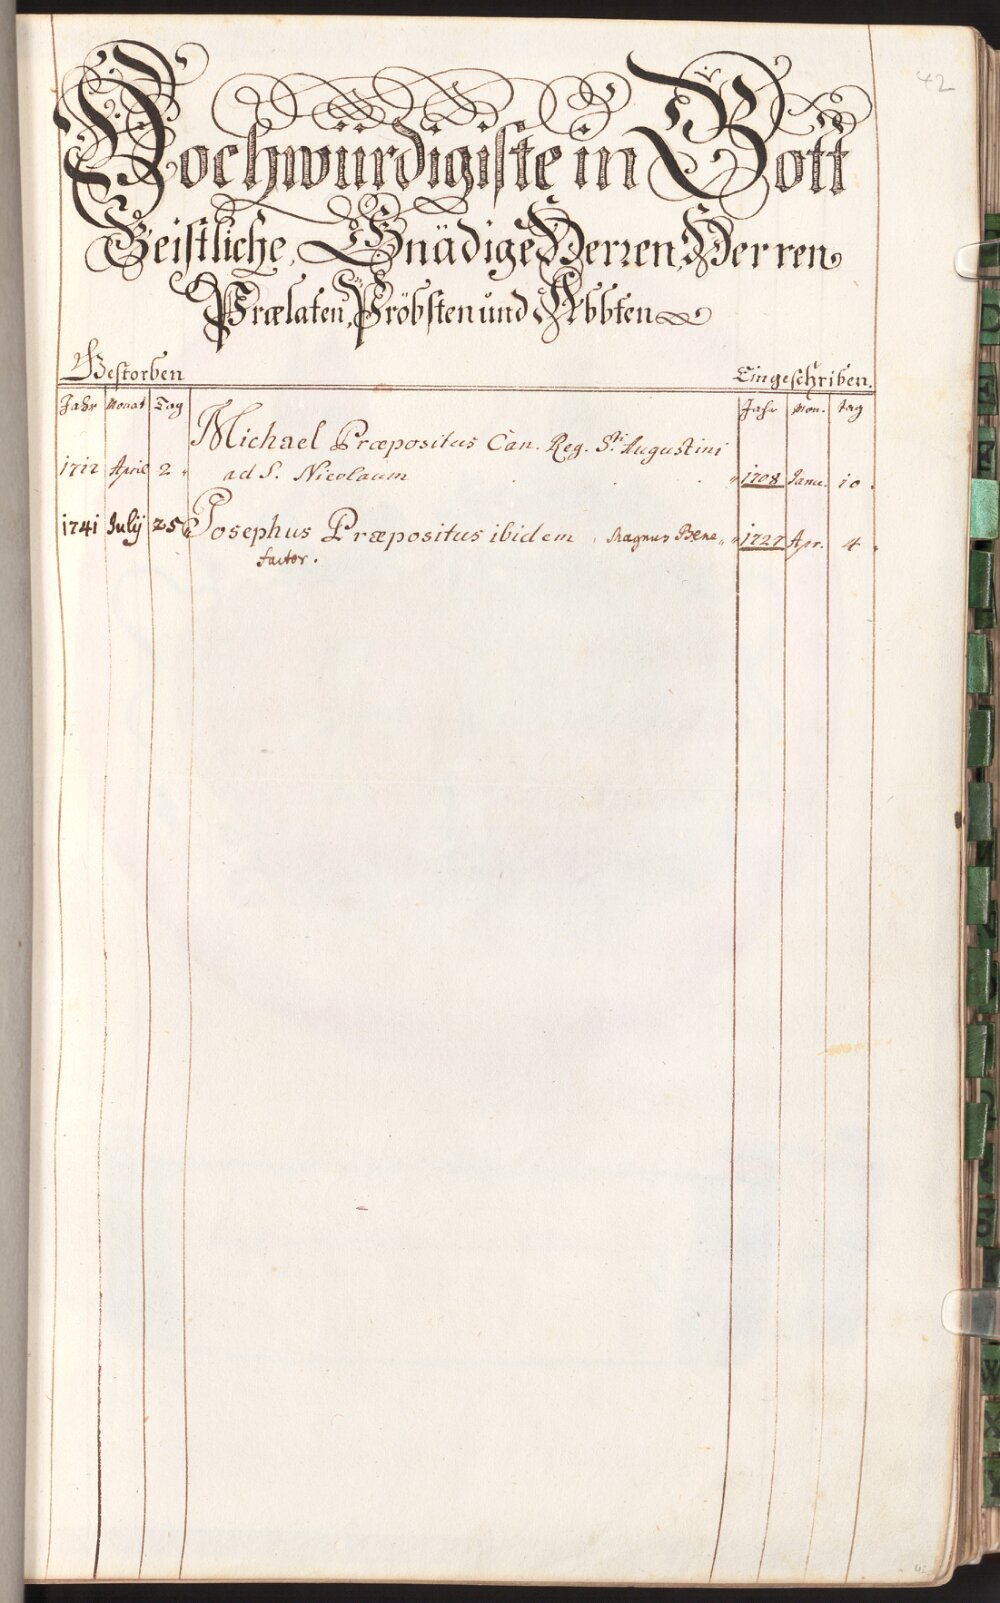 42
Hochwürdigiste in Gott
Geistliche, Gnädige Herren, Herren
Prælaten, Pröbsten und Abbten
Gestorben
Eingeschriben.
Jahr Monat Tag
Jahr Mon. tag
Michael Præpositus Can. Reg. Sti. Augustini
1712 April 2 ad S. Nicolaum 1708 Janu. 10.
1741 Julij 25 Josephus Præpositus ibidem, Magnus Bene 1727 Apr. 4
factor.